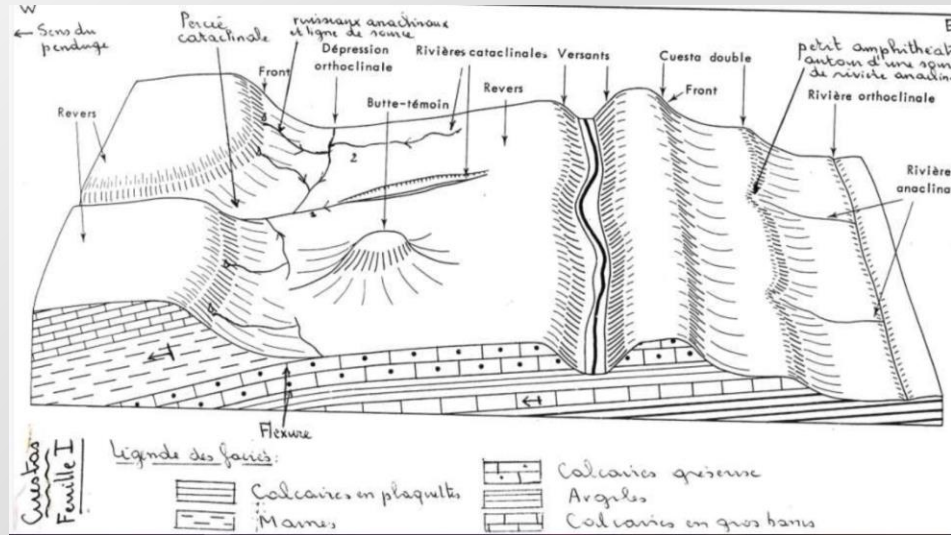 W
E
← Sens du
pendage
Percée
cataclinale
ruisseaux anaclinaux
et ligne de source
Dépression
orthoclinale
Rivières cataclinales
Versants
Cuesta double
petit amphithéat
autour d'une sou
de rivière anaclin
Front
Revers
Revers
Front
Rivière orthoclinale
Butte-témoin
2
Rivière
anaclina
Flexure
Cuestas
Feuille I
Légende des faciès:
Calcaires en plaquettes
Marnes
Calcaires gréseuse
Argiles
Calcaires en gros bancs